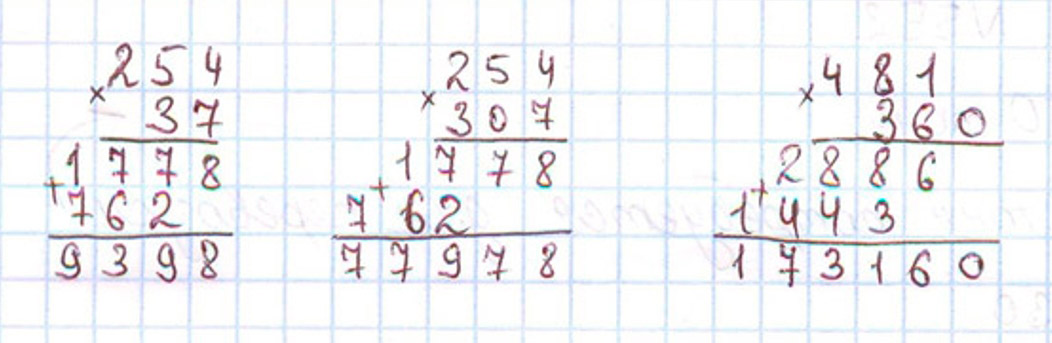 × 254
37
1778
+ 762
9398
× 254
307
1778
+ 762
77978
× 481
360
2886
+ 1443
173160